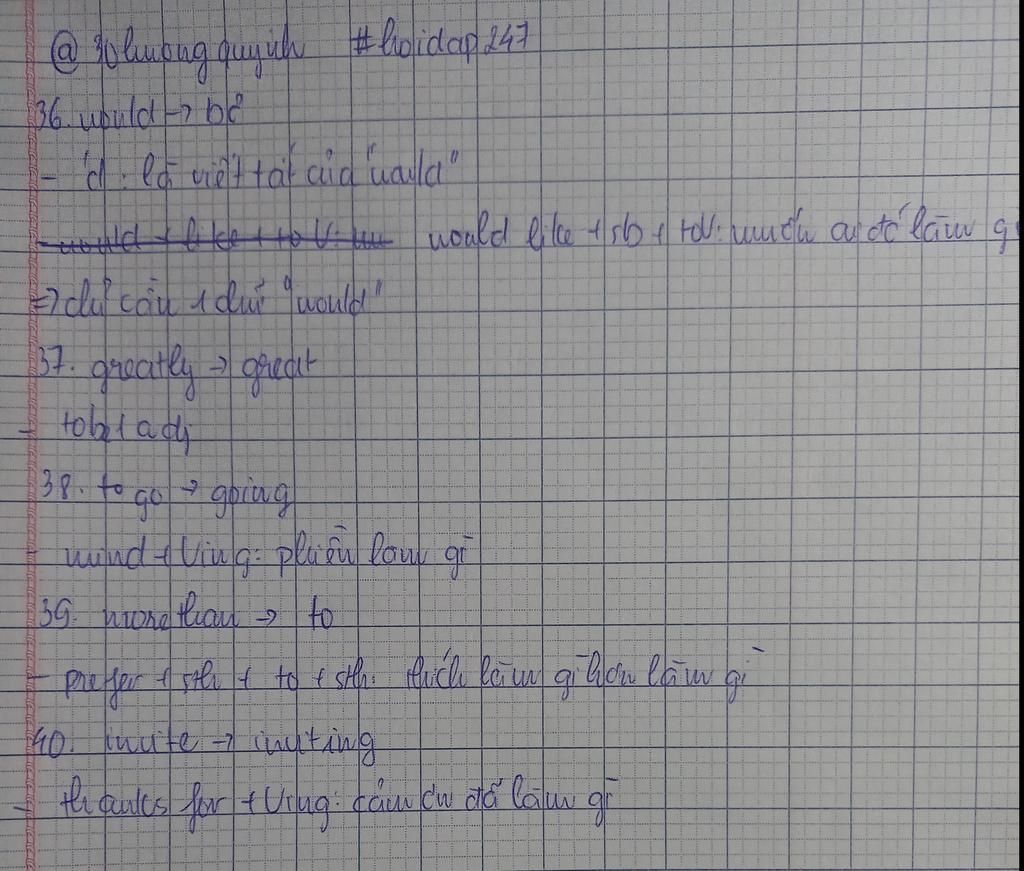 @ 30lmongquynh #hoidap247
36. would → bỏ
- 'd : là viết tắt của "would"
- would + like + to V: mu would like + sb + toV: muốn ai đó làm g
=> dư câu 1 chữ "would"
37. greatly → great
- tobe + adj
38. to go → going
- mind + Ving: phiền làm gì
39. more than → to
- prefer + sth + to + sth: thích làm gì hơn làm gì
40. invite → inviting
- thanks for + Ving: cảm ơn đã làm gì